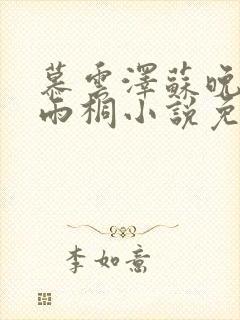 慕雲澤蘇晚
雨桐小說免
李如意